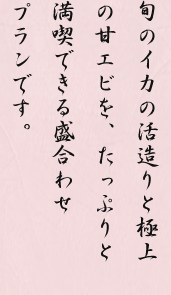 旬のイカの活造りと極上
の甘エビを、たっぷりと
満喫できる盛合わせ
プランです。